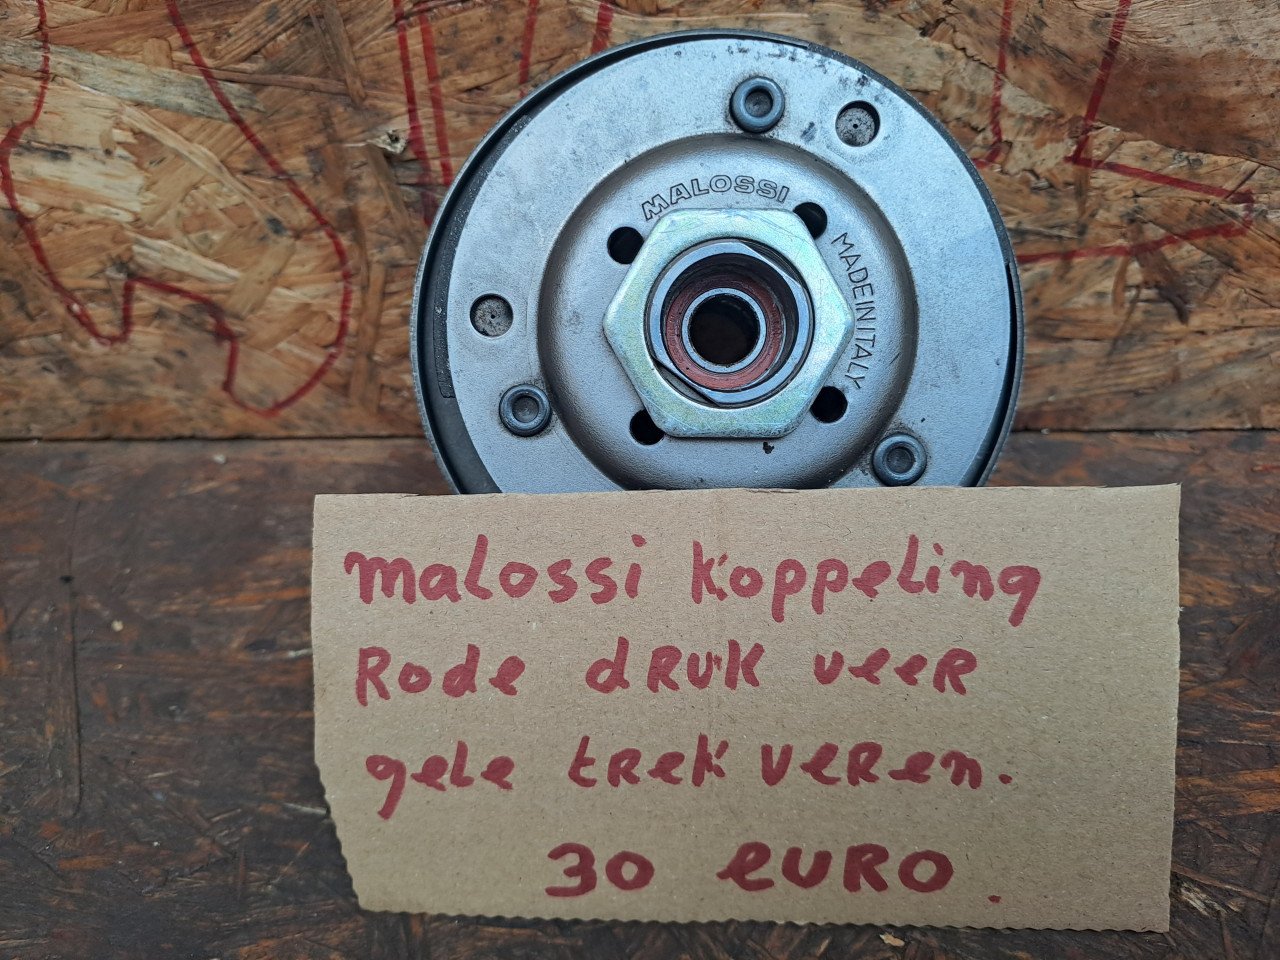 MALOSSI
MADE IN ITALY
malossi koppeling
Rode dRUK veeR
gele tRek veRen.
30 euRO.